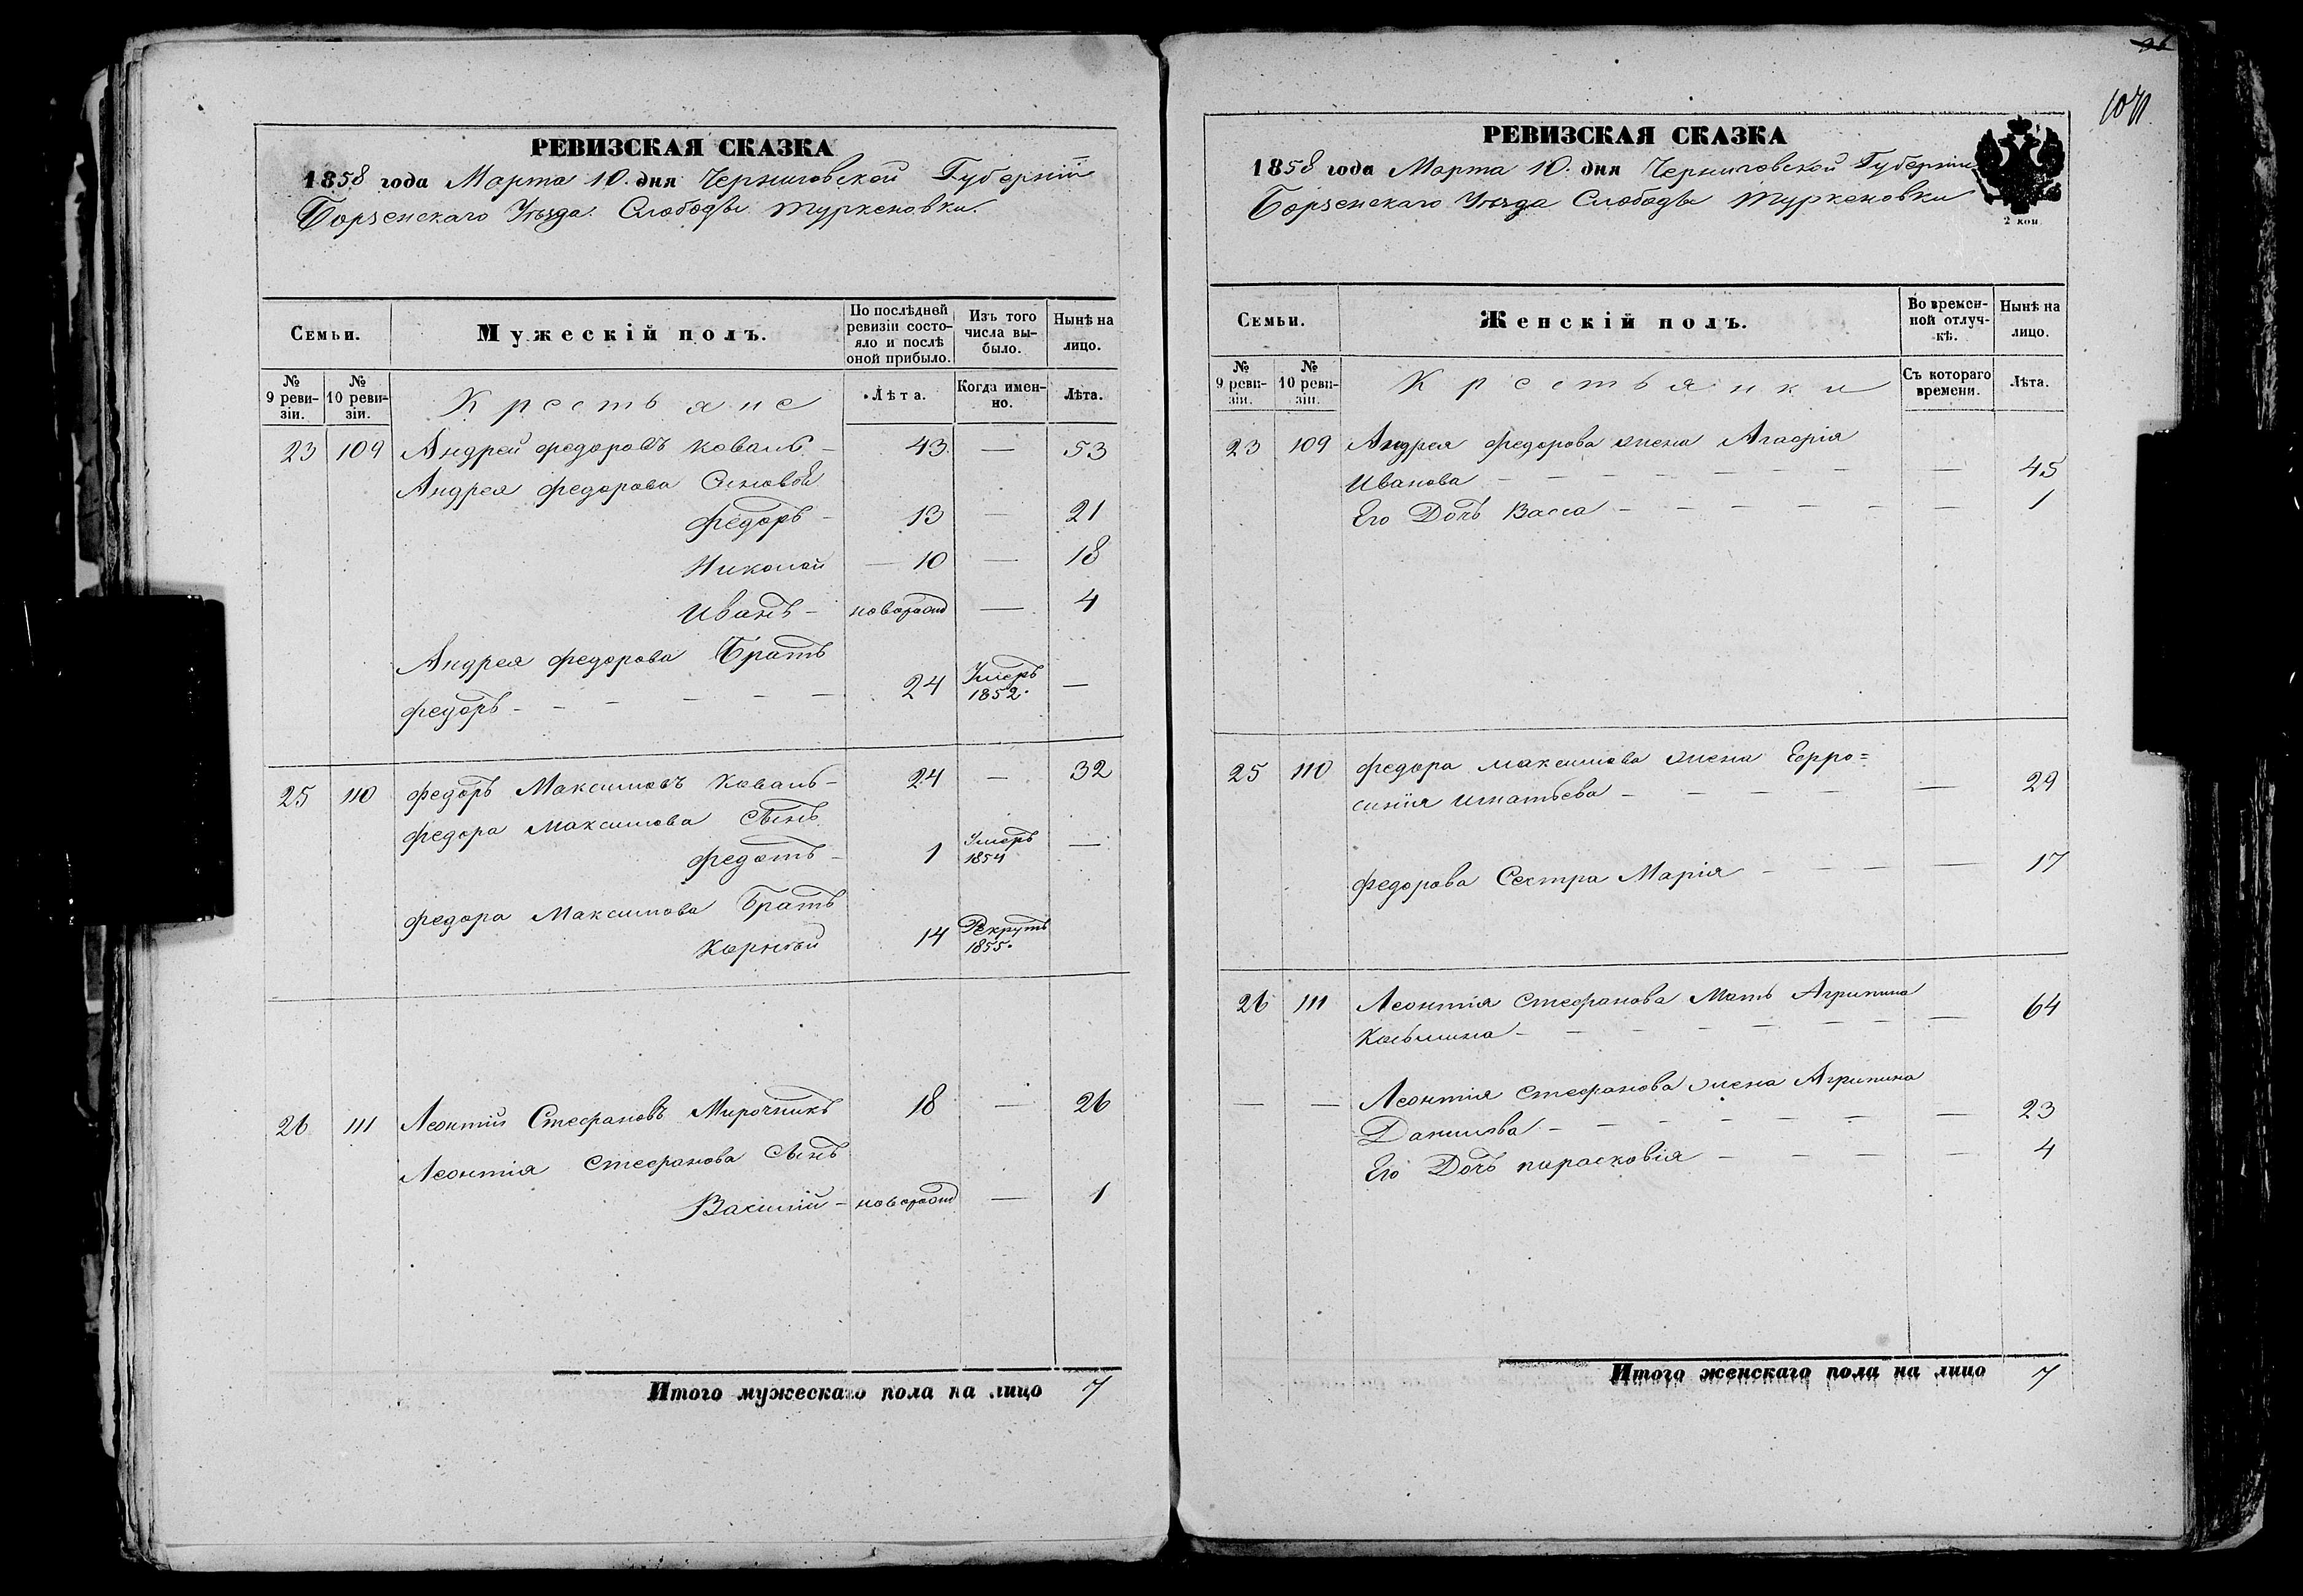 РЕВИЗСКАЯ СКАЗКА
1858 года Марта 10. дня Черниговской Губерніи
Борзенскаго Уѣзда. Слободы Туркеновки.
Семьи.
Мужескій полъ.
По послѣдней ревизіи состояло и послѣ оной прибыло.
Изъ того числа выбыло.
Нынѣ на лицо.
№ 9 ревизіи.
№ 10 ревизіи.
Крестьяне
Лѣта.
Когда именно.
Лѣта.
23 109 Андрей Федоровъ Коваль - 43 — 53
Андрея Федорова Сыновья
Федоръ - 13 — 21
Николай — 10 — 18
Иванъ - новорожд — 4
Андрея Федорова Братъ
Федоръ - - - - - - 24 Умеръ 1852. —
25 110 Федоръ Максимовъ Коваль - 24 — 32
Федора Максимова Сынъ
Федотъ - 1 Умеръ 1854 —
Федора Максимова Братъ
Корнѣй 14 Рекрутъ 1855.
26 111 Леонтій Стефановъ Мирочникъ 18 — 26
Леонтія Стефанова Сынъ
Василій - новорожд — 1
Итого мужескаго пола на лицо 7
96
РЕВИЗСКАЯ СКАЗКА
1858 года Марта 10. дня Черниговской Губерніи
Борзенскаго Уѣзда Слободы Туркеновки
2 коп.
Семьи.
Женскій полъ.
Во временной отлучкѣ.
Нынѣ на лицо.
№ 9 ревизіи.
№ 10 ревизіи.
Крестьянки
Съ котораго времени.
Лѣта.
23 109 Андрея Федорова жена Агафрія
Иванова - - - - - - - — 45
Его Дочь Васса - - - - - - — 1
25 110 Федора Максимова жена Ефро=
синія Игнатьева - - - - — 29
Федорова Сестра Марія - - - — 17
26 111 Леонтія Стефанова Мать Агрипина
Козьмина - - - - - - - — 64
— — Леонтія Стефанова жена Агрипина
Данилова - - - - - - — 23
Его Дочь Парасковія - - - - 4
Итого женскаго пола на лицо 7